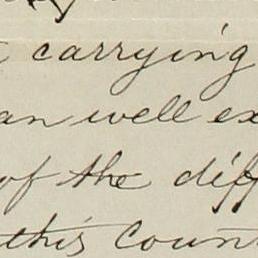 carrying
an well ex
of the diff
this coun